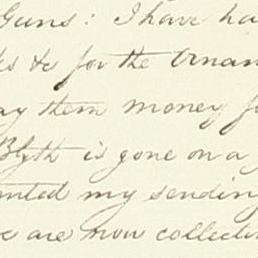 Guns: I have ha
ks &c for the Ornam
ay them money fo
Blyth is gone on a
nted my sending
e are now collectin